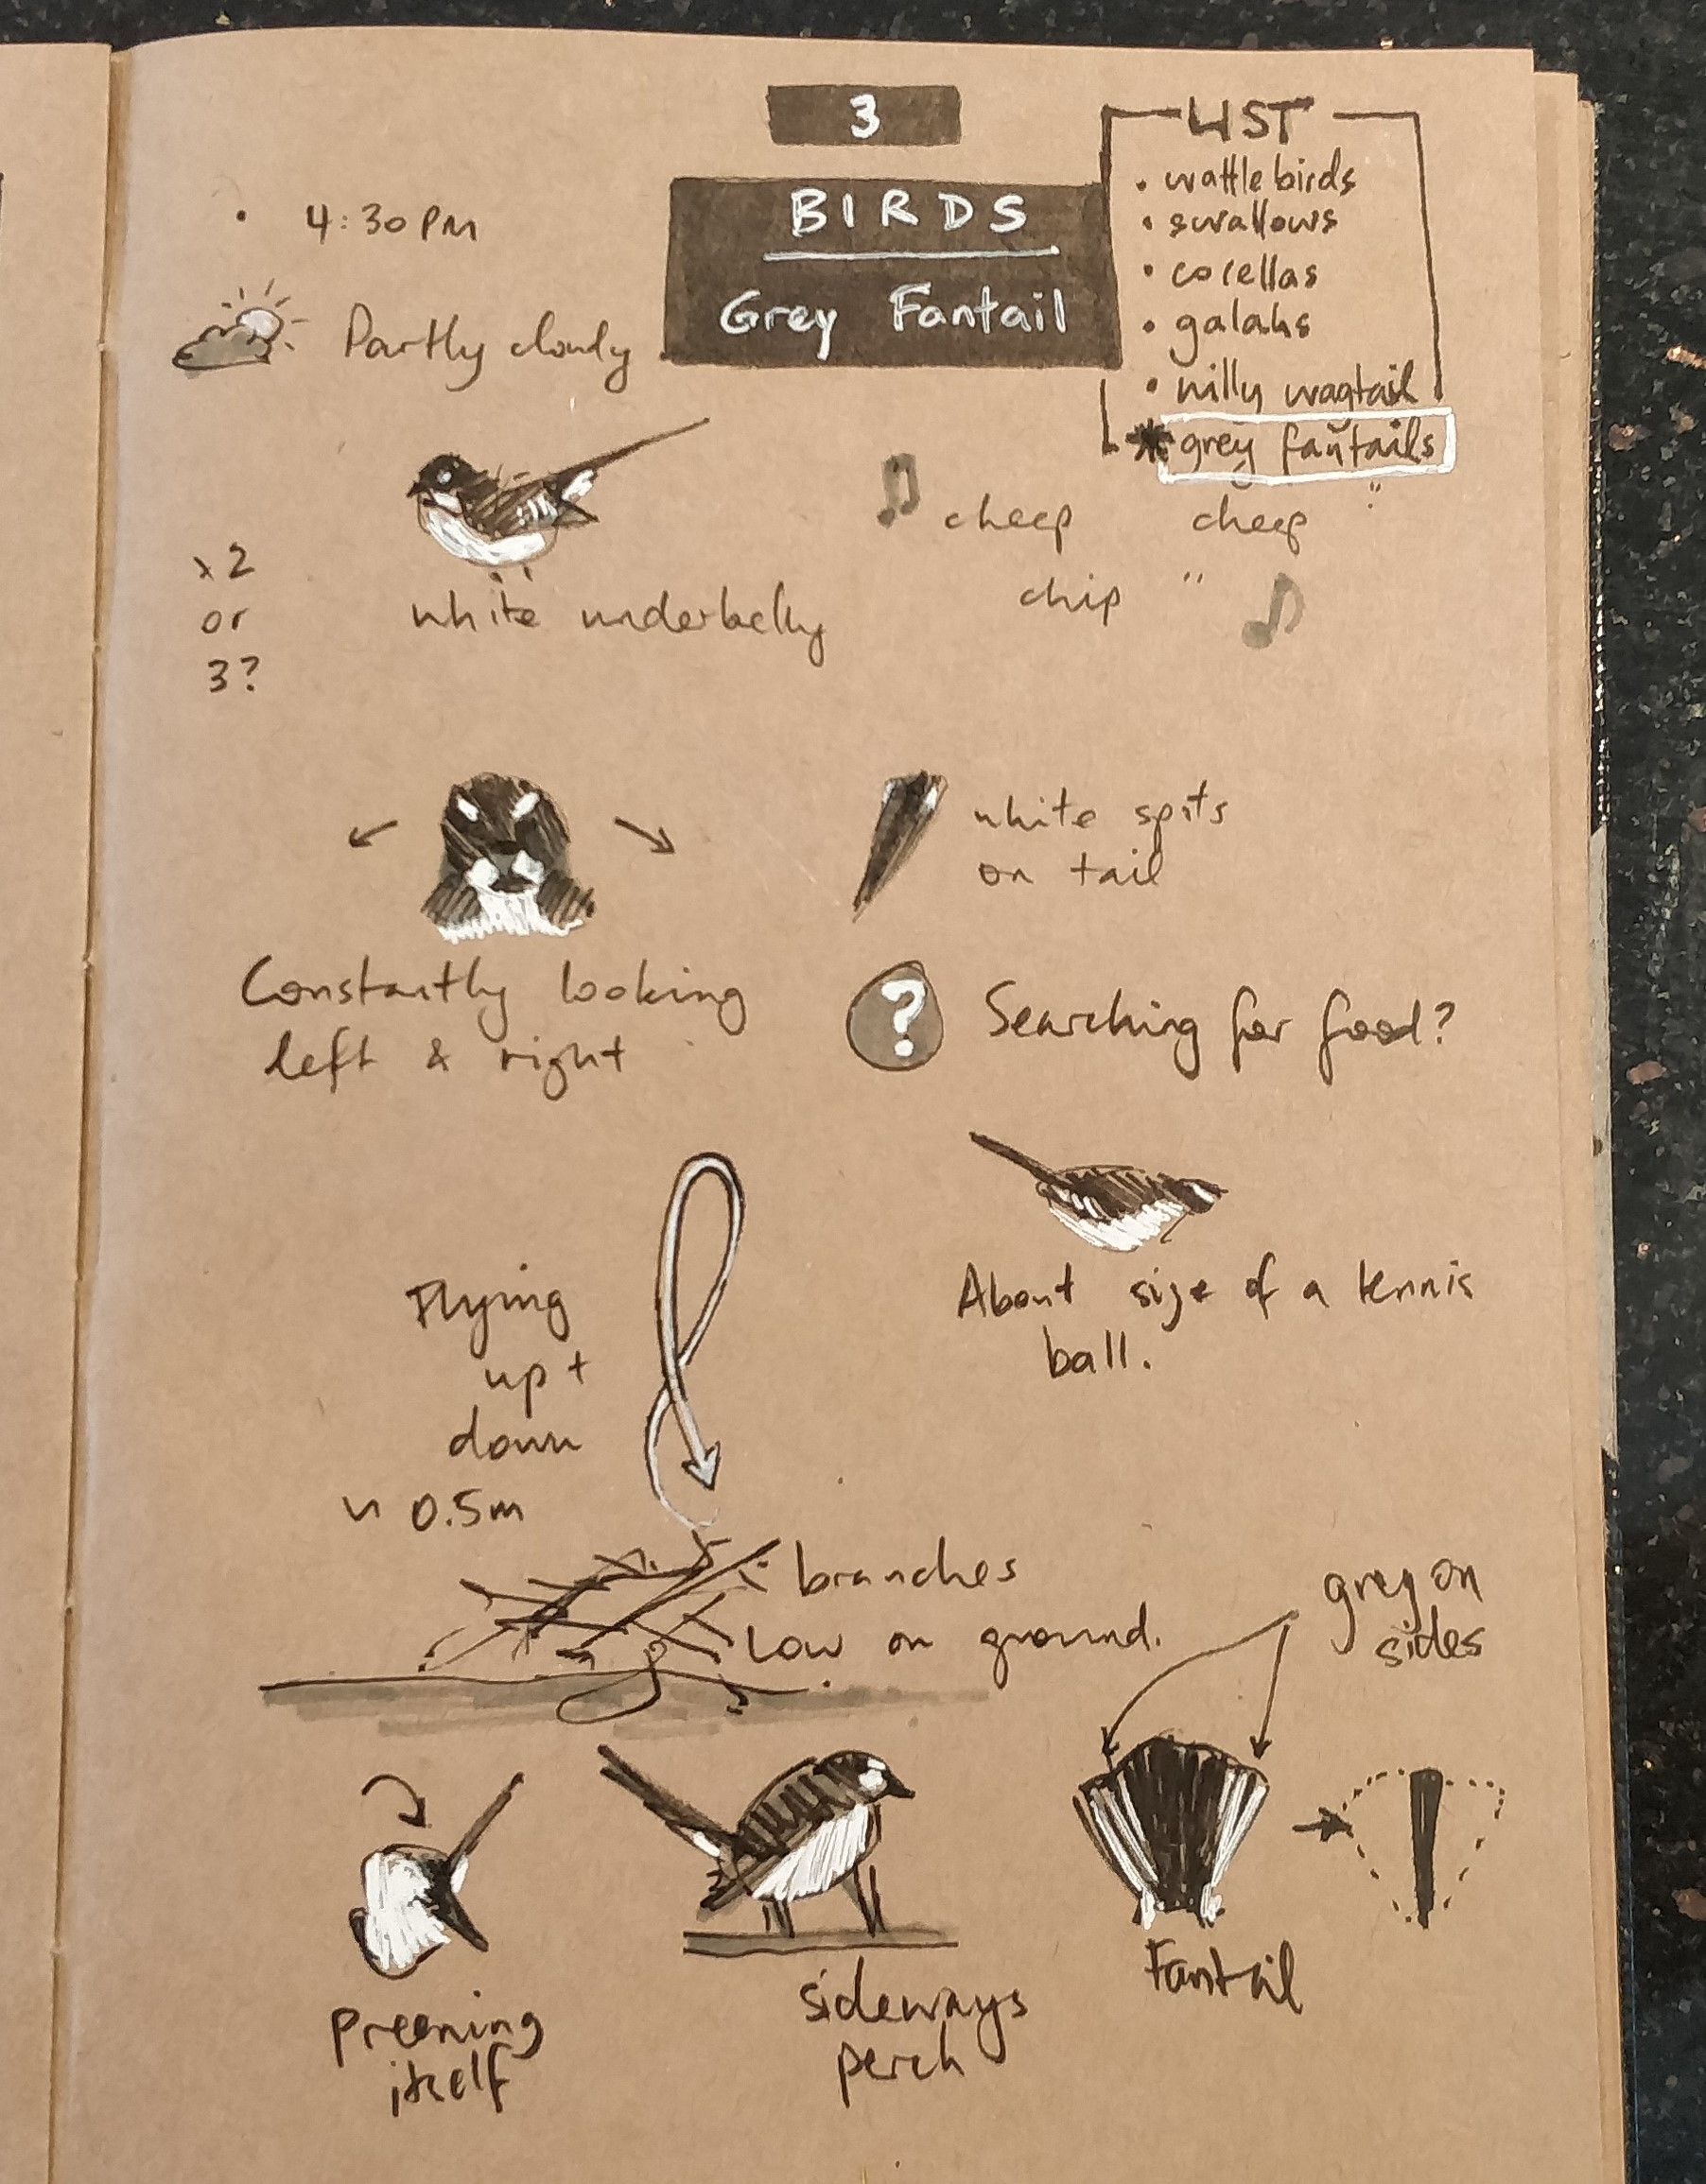 3
BIRDS
Grey Fantail
LIST
• wattle birds
• swallows
• corellas
• galahs
• willy wagtail
* grey fantails
• 4:30PM
Partly cloudy
x2
or
3?
white underbelly
cheep cheep "
chip "
Constantly looking
left & right
white spots
on tail
? Searching for food?
Flying
up +
down
~ 0.5m
About size of a tennis
ball.
branches
low on ground.
grey on
sides
preening
itself
sideways
perch
Fantail